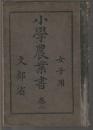 女子用
小學農業書 卷二
文部省